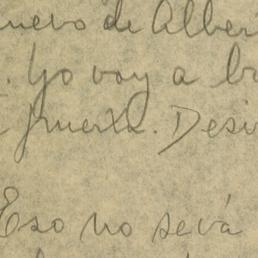 nuevo de Alber
. Yo voy a b
puerta. Desi
Eso no será